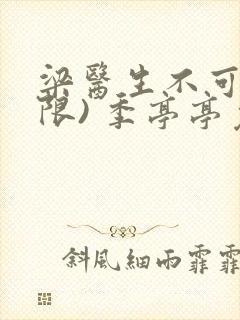 梁醫生不可
限)季亭亭
斜風細雨霏霏